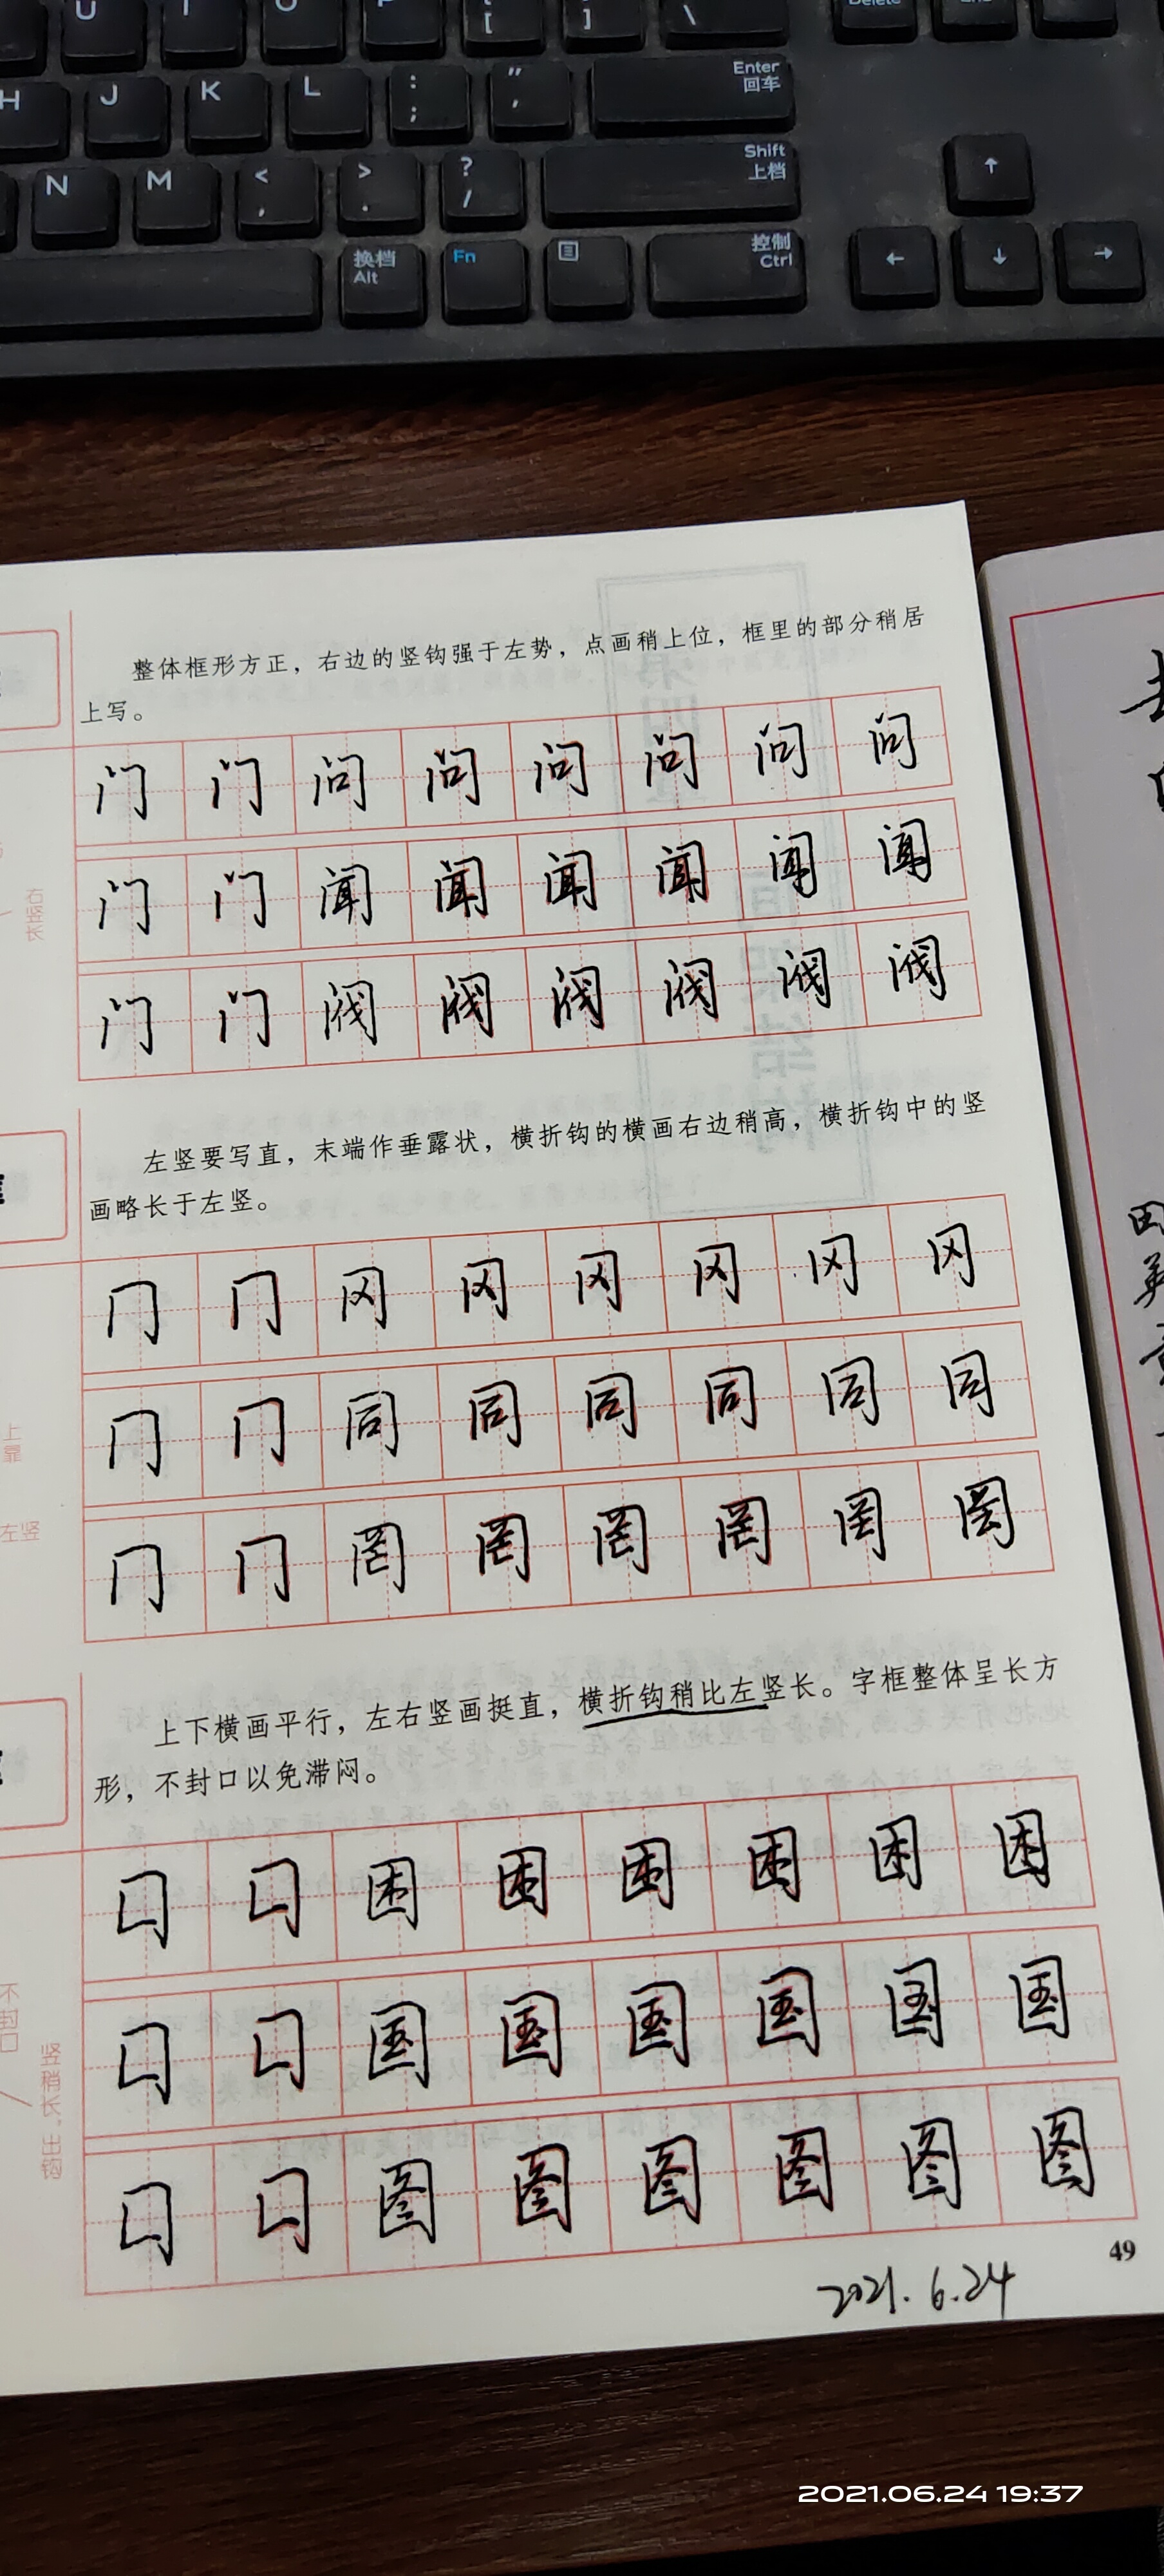 U I O P [ ] \ Delete End
H J K L : ; " ' Enter 回车
N M < , > . ? / Shift 上档 ↑
换档 Alt Fn 控制 Ctrl ← ↓ →
整体框形方正，右边的竖钩强于左势，点画稍上位，框里的部分稍居
上写。
门 门 问 问 问 问 问 问
门 门 闻 闻 闻 闻 闻 闻
右竖长
门 门 阀 阀 阀 阀 阀 阀
左竖要写直，末端作垂露状，横折钩的横画右边稍高，横折钩中的竖
画略长于左竖。
冂 冂 冈 冈 冈 冈 冈 冈
冂 冂 同 同 同 同 同 同
上靠
左竖
冂 冂 罔 罔 罔 罔 罔 罔
上下横画平行，左右竖画挺直，横折钩稍比左竖长。字框整体呈长方
形，不封口以免滞闷。
囗 囗 困 困 困 困 困 困
囗 囗 国 国 国 国 国 国
不封口
竖稍长，出钩
囗 囗 图 图 图 图 图 图
49
2021.6.24
2021.06.24 19:37